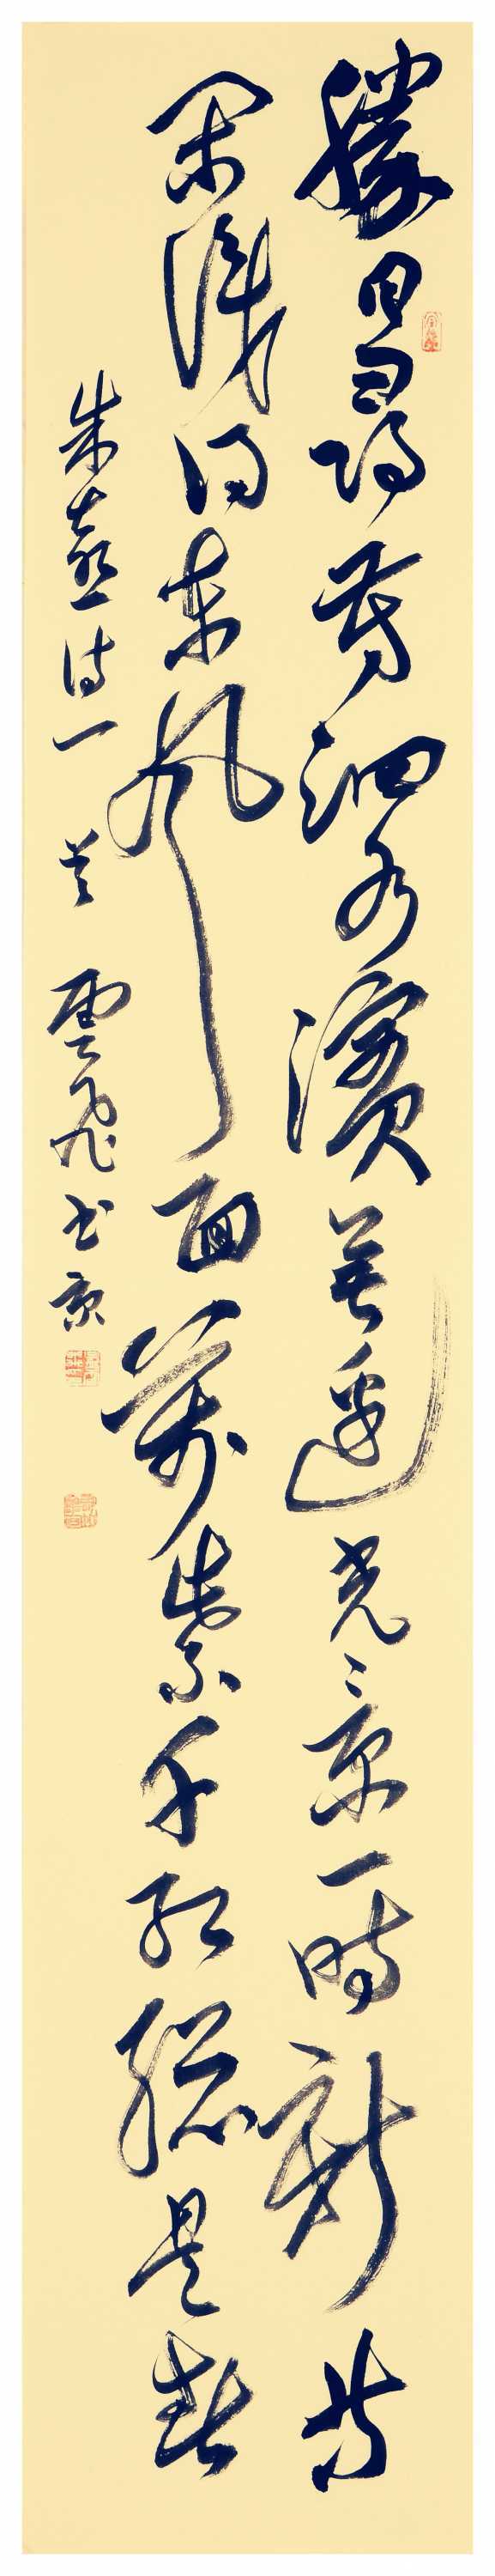 勝日尋芳泗水濱無邊光景一時新等
閑識得東風面萬紫千紅總是春
朱熹詩一首雲飛書京